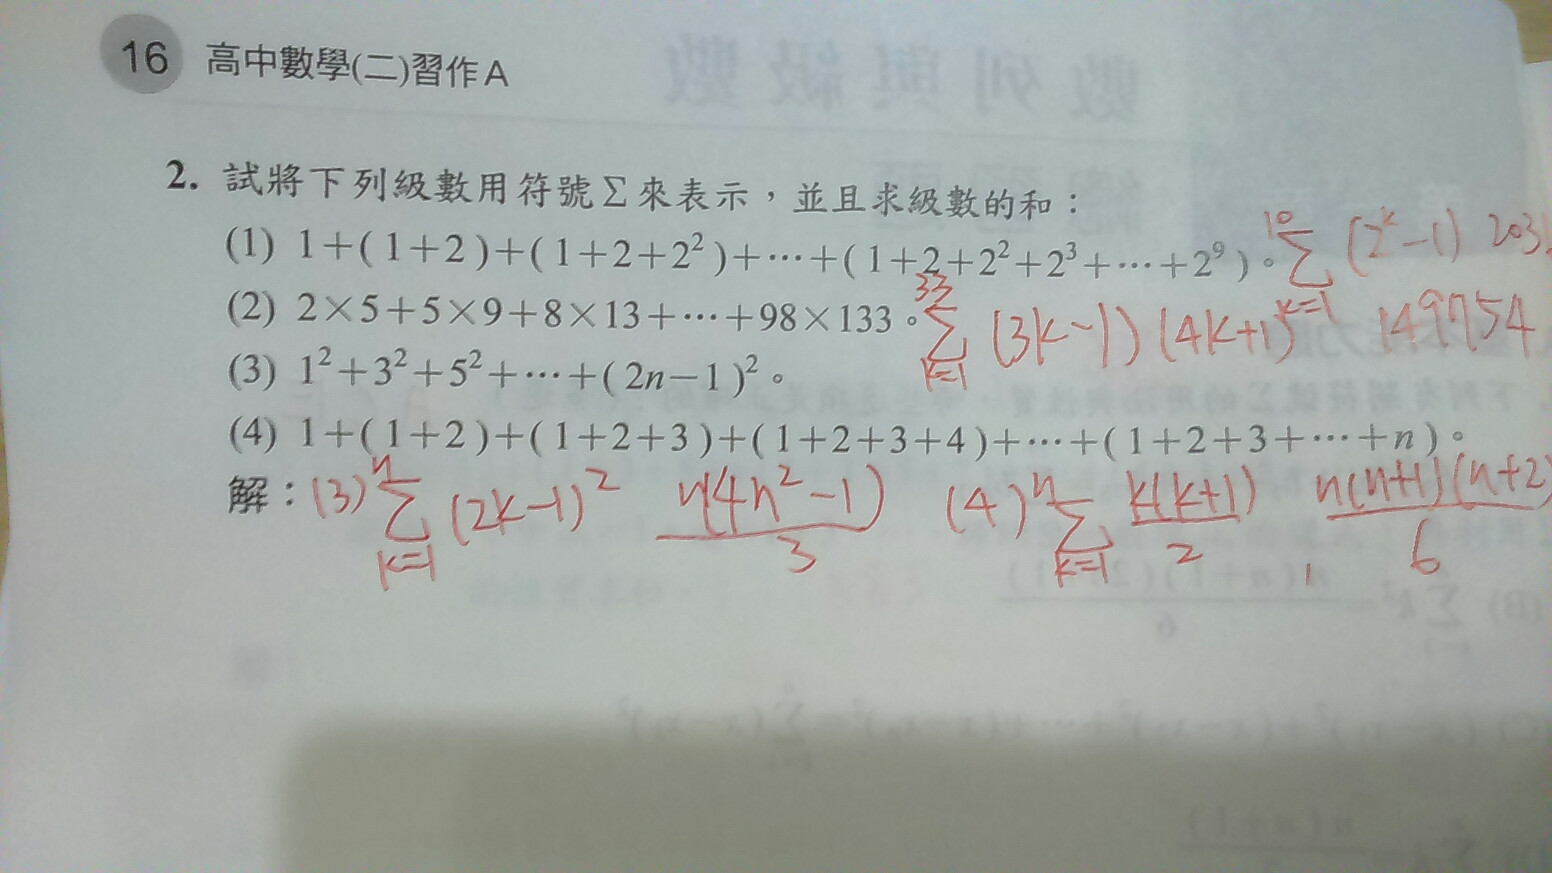 16 高中數學(二)習作A
2. 試將下列級數用符號Σ來表示，並且求級數的和：
(1) 1+(1+2)+(1+2+2²)+⋯+(1+2+2²+2³+⋯+2⁹)。 10 Σ k=1 (2ᵏ-1) 203
(2) 2×5+5×9+8×13+⋯+98×133。 33 Σ k=1 (3k-1)(4k+1) 149754
(3) 1²+3²+5²+⋯+(2n-1)²。
(4) 1+(1+2)+(1+2+3)+(1+2+3+4)+⋯+(1+2+3+⋯+n)。
解：(3) n Σ k=1 (2k-1)² n(4n²-1)/3 (4) n Σ k=1 k(k+1)/2 , n(n+1)(n+2)/6